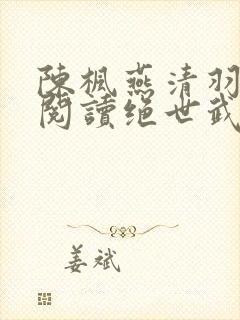 陳楓燕清羽
閱讀绝世武
姜斌